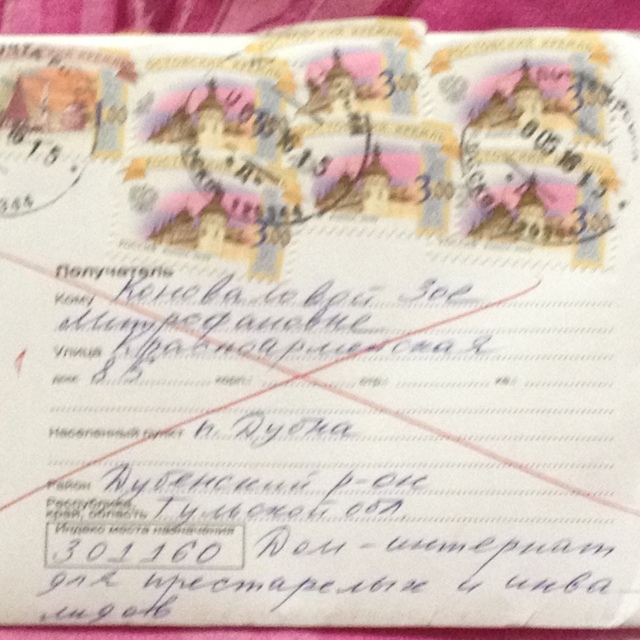 РОСТОВСКИЙ КРЕМЛЬ
РОСТОВСКИЙ КРЕМЛЬ
РОСТОВСКИЙ КРЕМЛЬ
1 00
3 00
3 00
РОСТОВСКИЙ КРЕМЛЬ
3 00
3 00
3 00
Получатель
Кому Коноваловой Зое
Митрофановне
Улица Красноармейская
дом: 83 корп.: стр.: кв.:
Населенный пункт п. Дубна
Район Дубенский р-он
Республика,
край, область Тульской обл.
Индекс места назначения
301160 Дом-интернат
для престарелых и инва
лидов